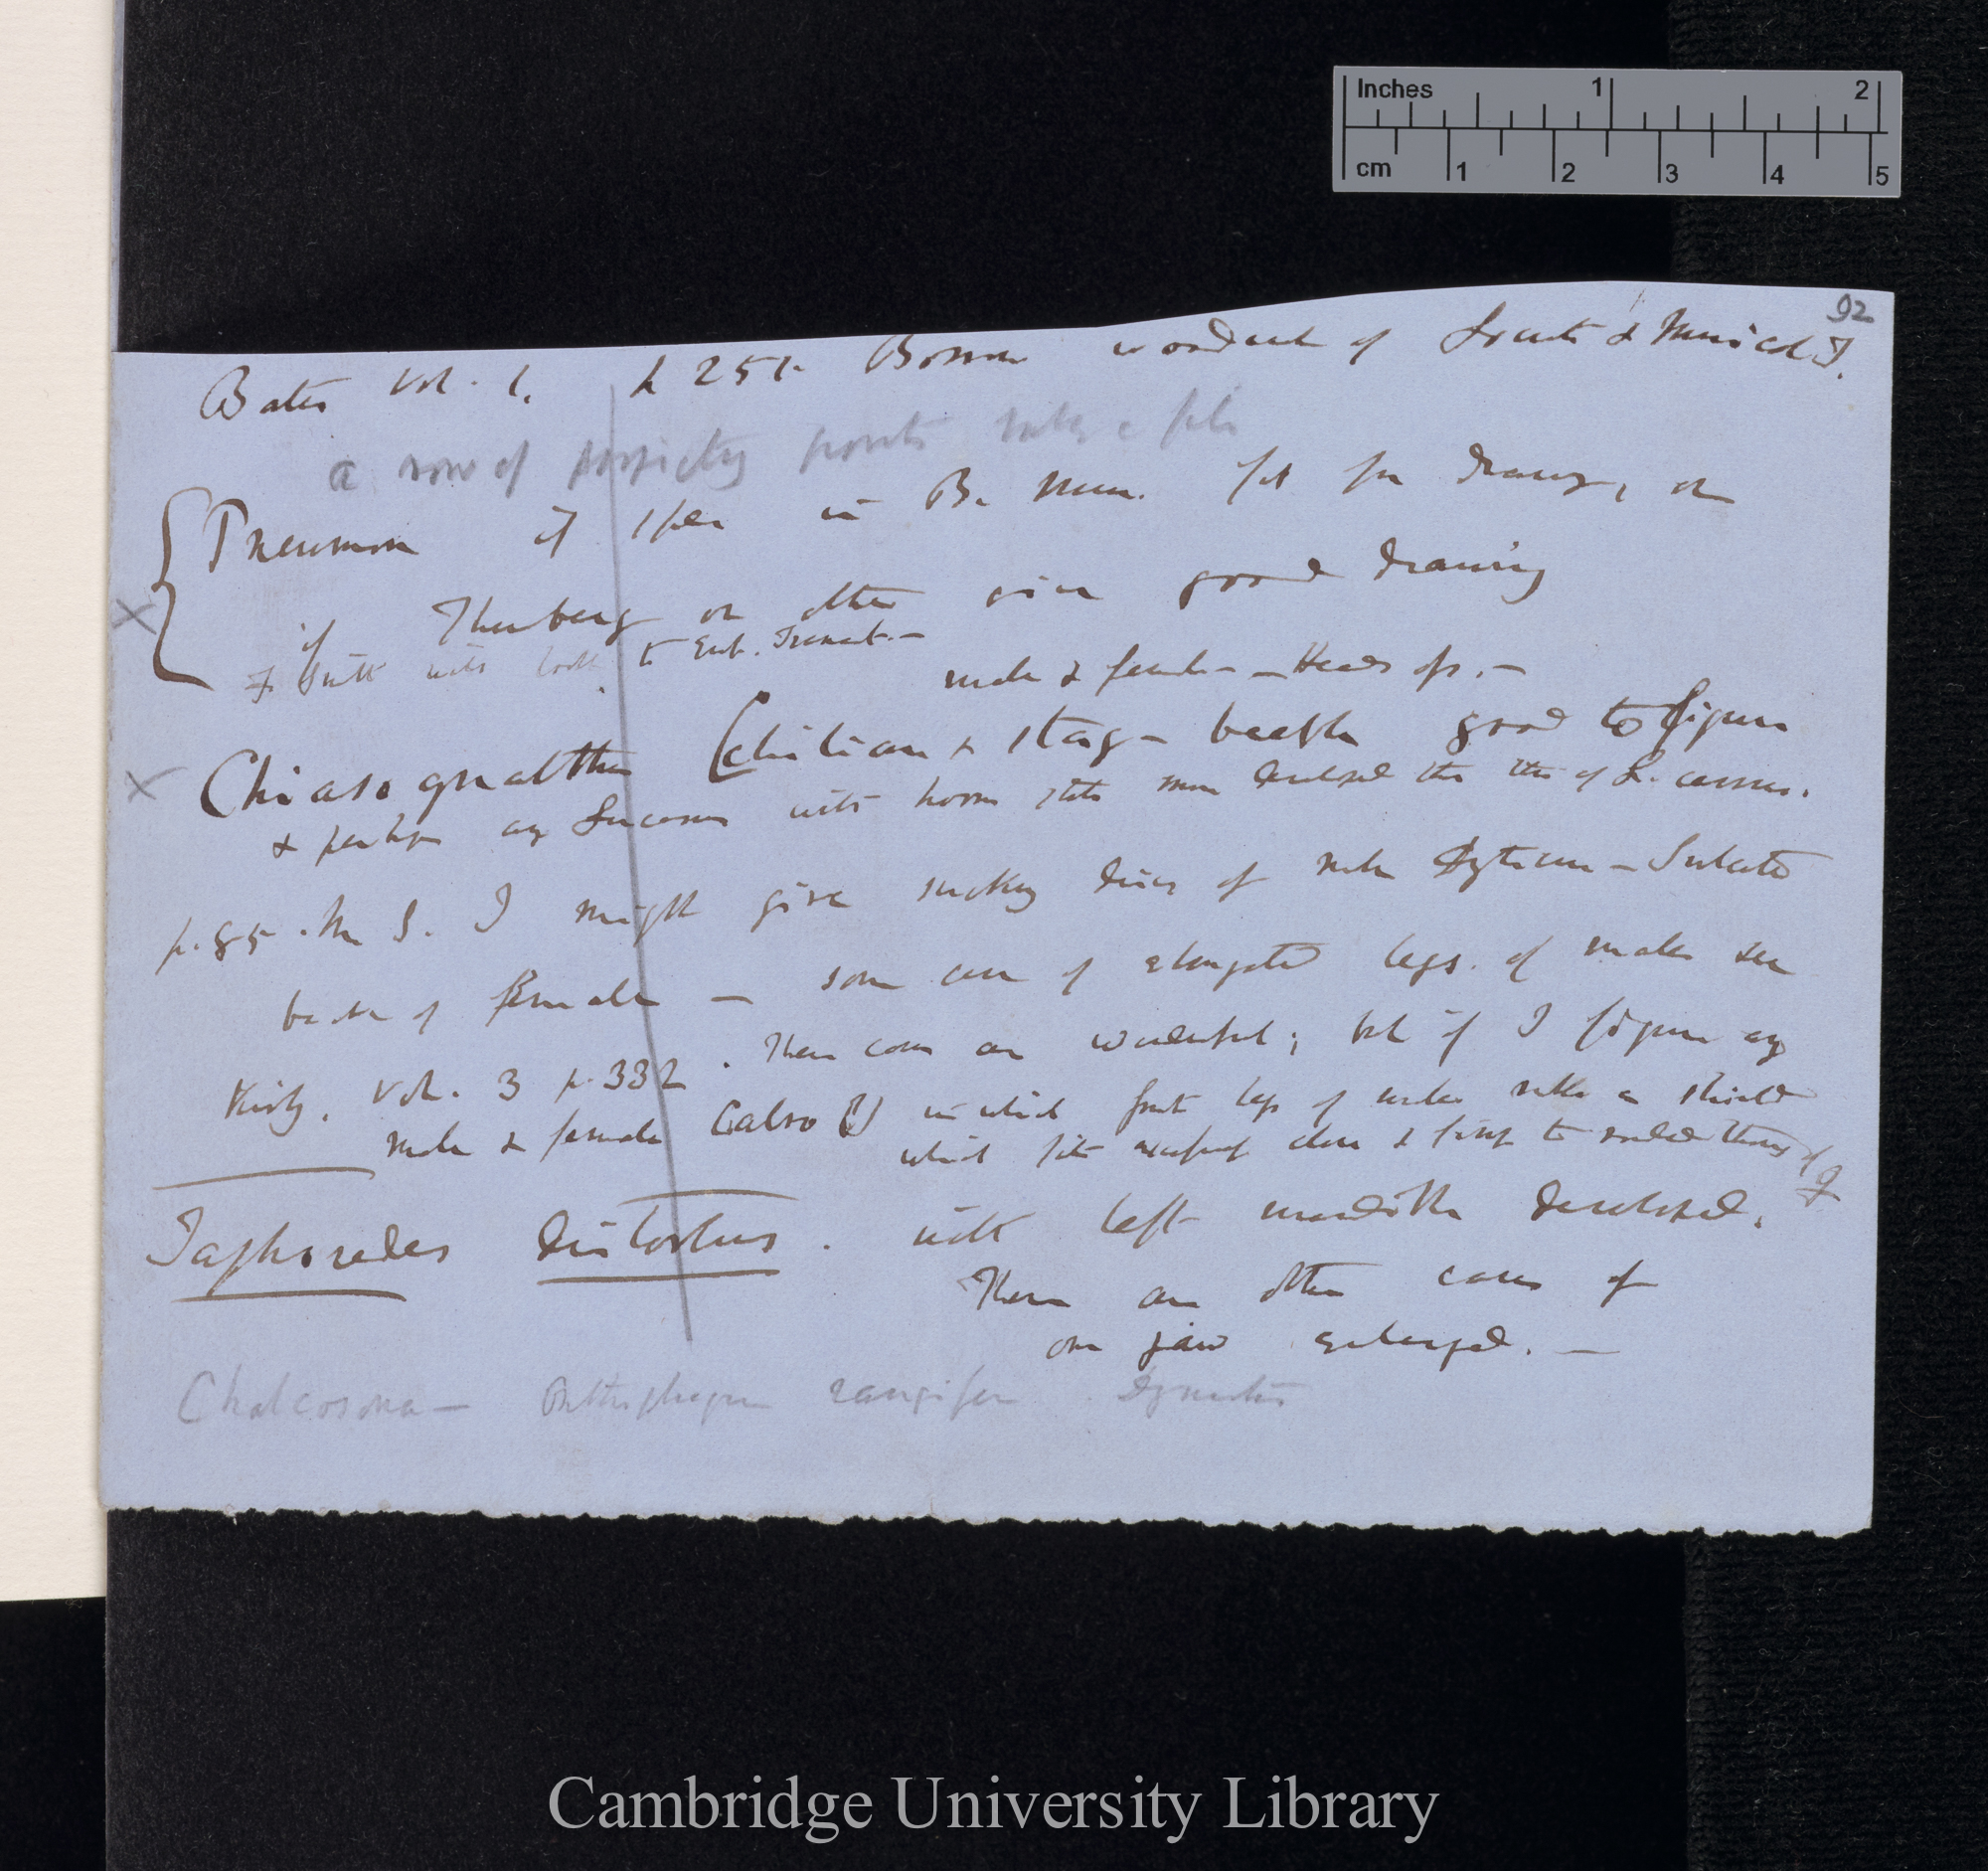 Inches 1 2
cm 1 2 3 4 5
92
Bates Vol. 1. p 251. Borrow woodcut of Locust & Musical I.
a row of projecting points like a file
Pneumora if spec in B. Mus. fit for drawing, or
if Thunberg or other give good drawing
F. Smith will look to Ent. Transact. —
male & female — Heads of. —
Chiasognathus (Chilian & stag-beetle good to figure
& perhaps any Lucanus with horns more developed than those of L. cervus.
p. 85. M S. I might give sucking discs of male Dyticus — Sulcated
back of female — some case of elongated legs of males see
Kirby. Vol. 3 p. 332. These cases are wonderful; but if I figure any
male & female Crabro (?) in which front legs of males like a shield
which fits close &
Taphroderes distortus. with left mandible developed.
There are other cases of
one jaw enlarged. —
Chalcosoma — Onthophagus rangifer Dynastes
Cambridge University Library